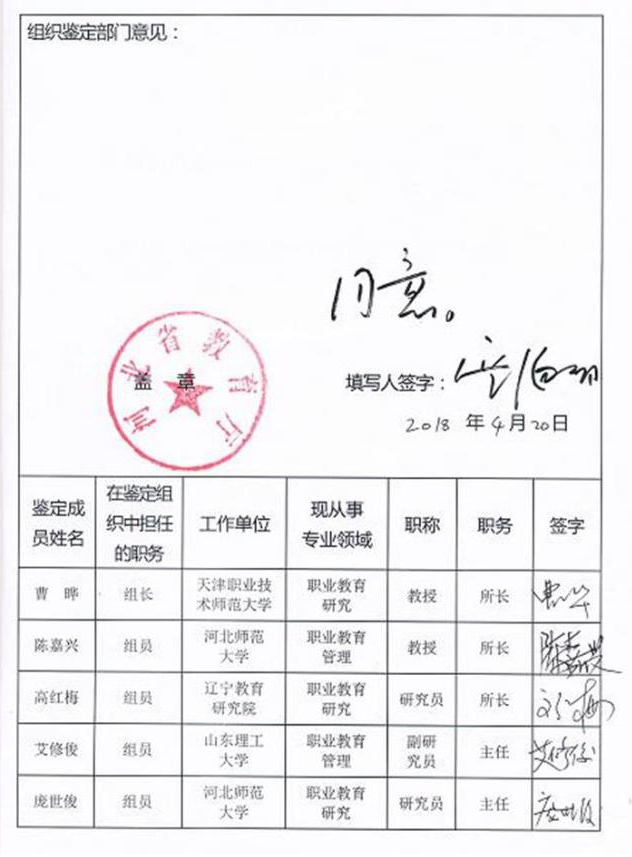 组织鉴定部门意见：
同意。
河北省教育厅
盖 章
填写人签字：
2018 年 4 月 20 日
鉴定成员姓名 在鉴定组织中担任的职务 工作单位 现从事专业领域 职称 职务 签字
曹 晔 组长 天津职业技术师范大学 职业教育研究 教授 所长 曹晔
陈嘉兴 组员 河北师范大学 职业教育管理 教授 所长 陈嘉兴
高红梅 组员 辽宁教育研究院 职业教育研究 研究员 所长
艾修俊 组员 山东理工大学 职业教育管理 副研究员 主任 艾修俊
庞世俊 组员 河北师范大学 职业教育研究 研究员 主任 庞世俊